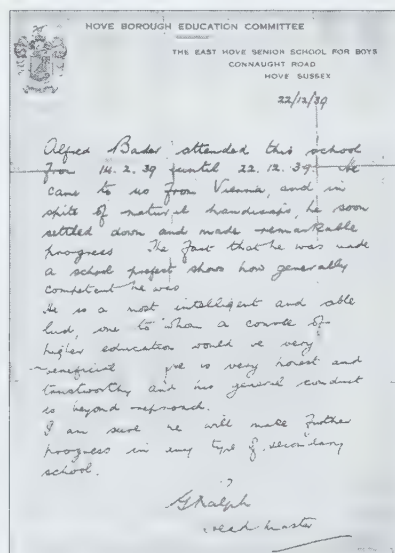 HOVE BOROUGH EDUCATION COMMITTEE
THE EAST HOVE SENIOR SCHOOL FOR BOYS
CONNAUGHT ROAD
HOVE SUSSEX
22/12/39
Alfred Bader attended this school
from 14.2.39 until 22.12.39. He
came to us from Vienna, and in
spite of natural handicaps, he soon
settled down and made remarkable
progress. The fact that he was made
a school prefect shows how generally
competent he was
He is a most intelligent and able
lad, one to whom a course of
higher education would be very
beneficial. He is very honest and
trustworthy and his general conduct
is beyond reproach.
I am sure he will make further
progress in any type of secondary
school.
G Ralph
Head-master